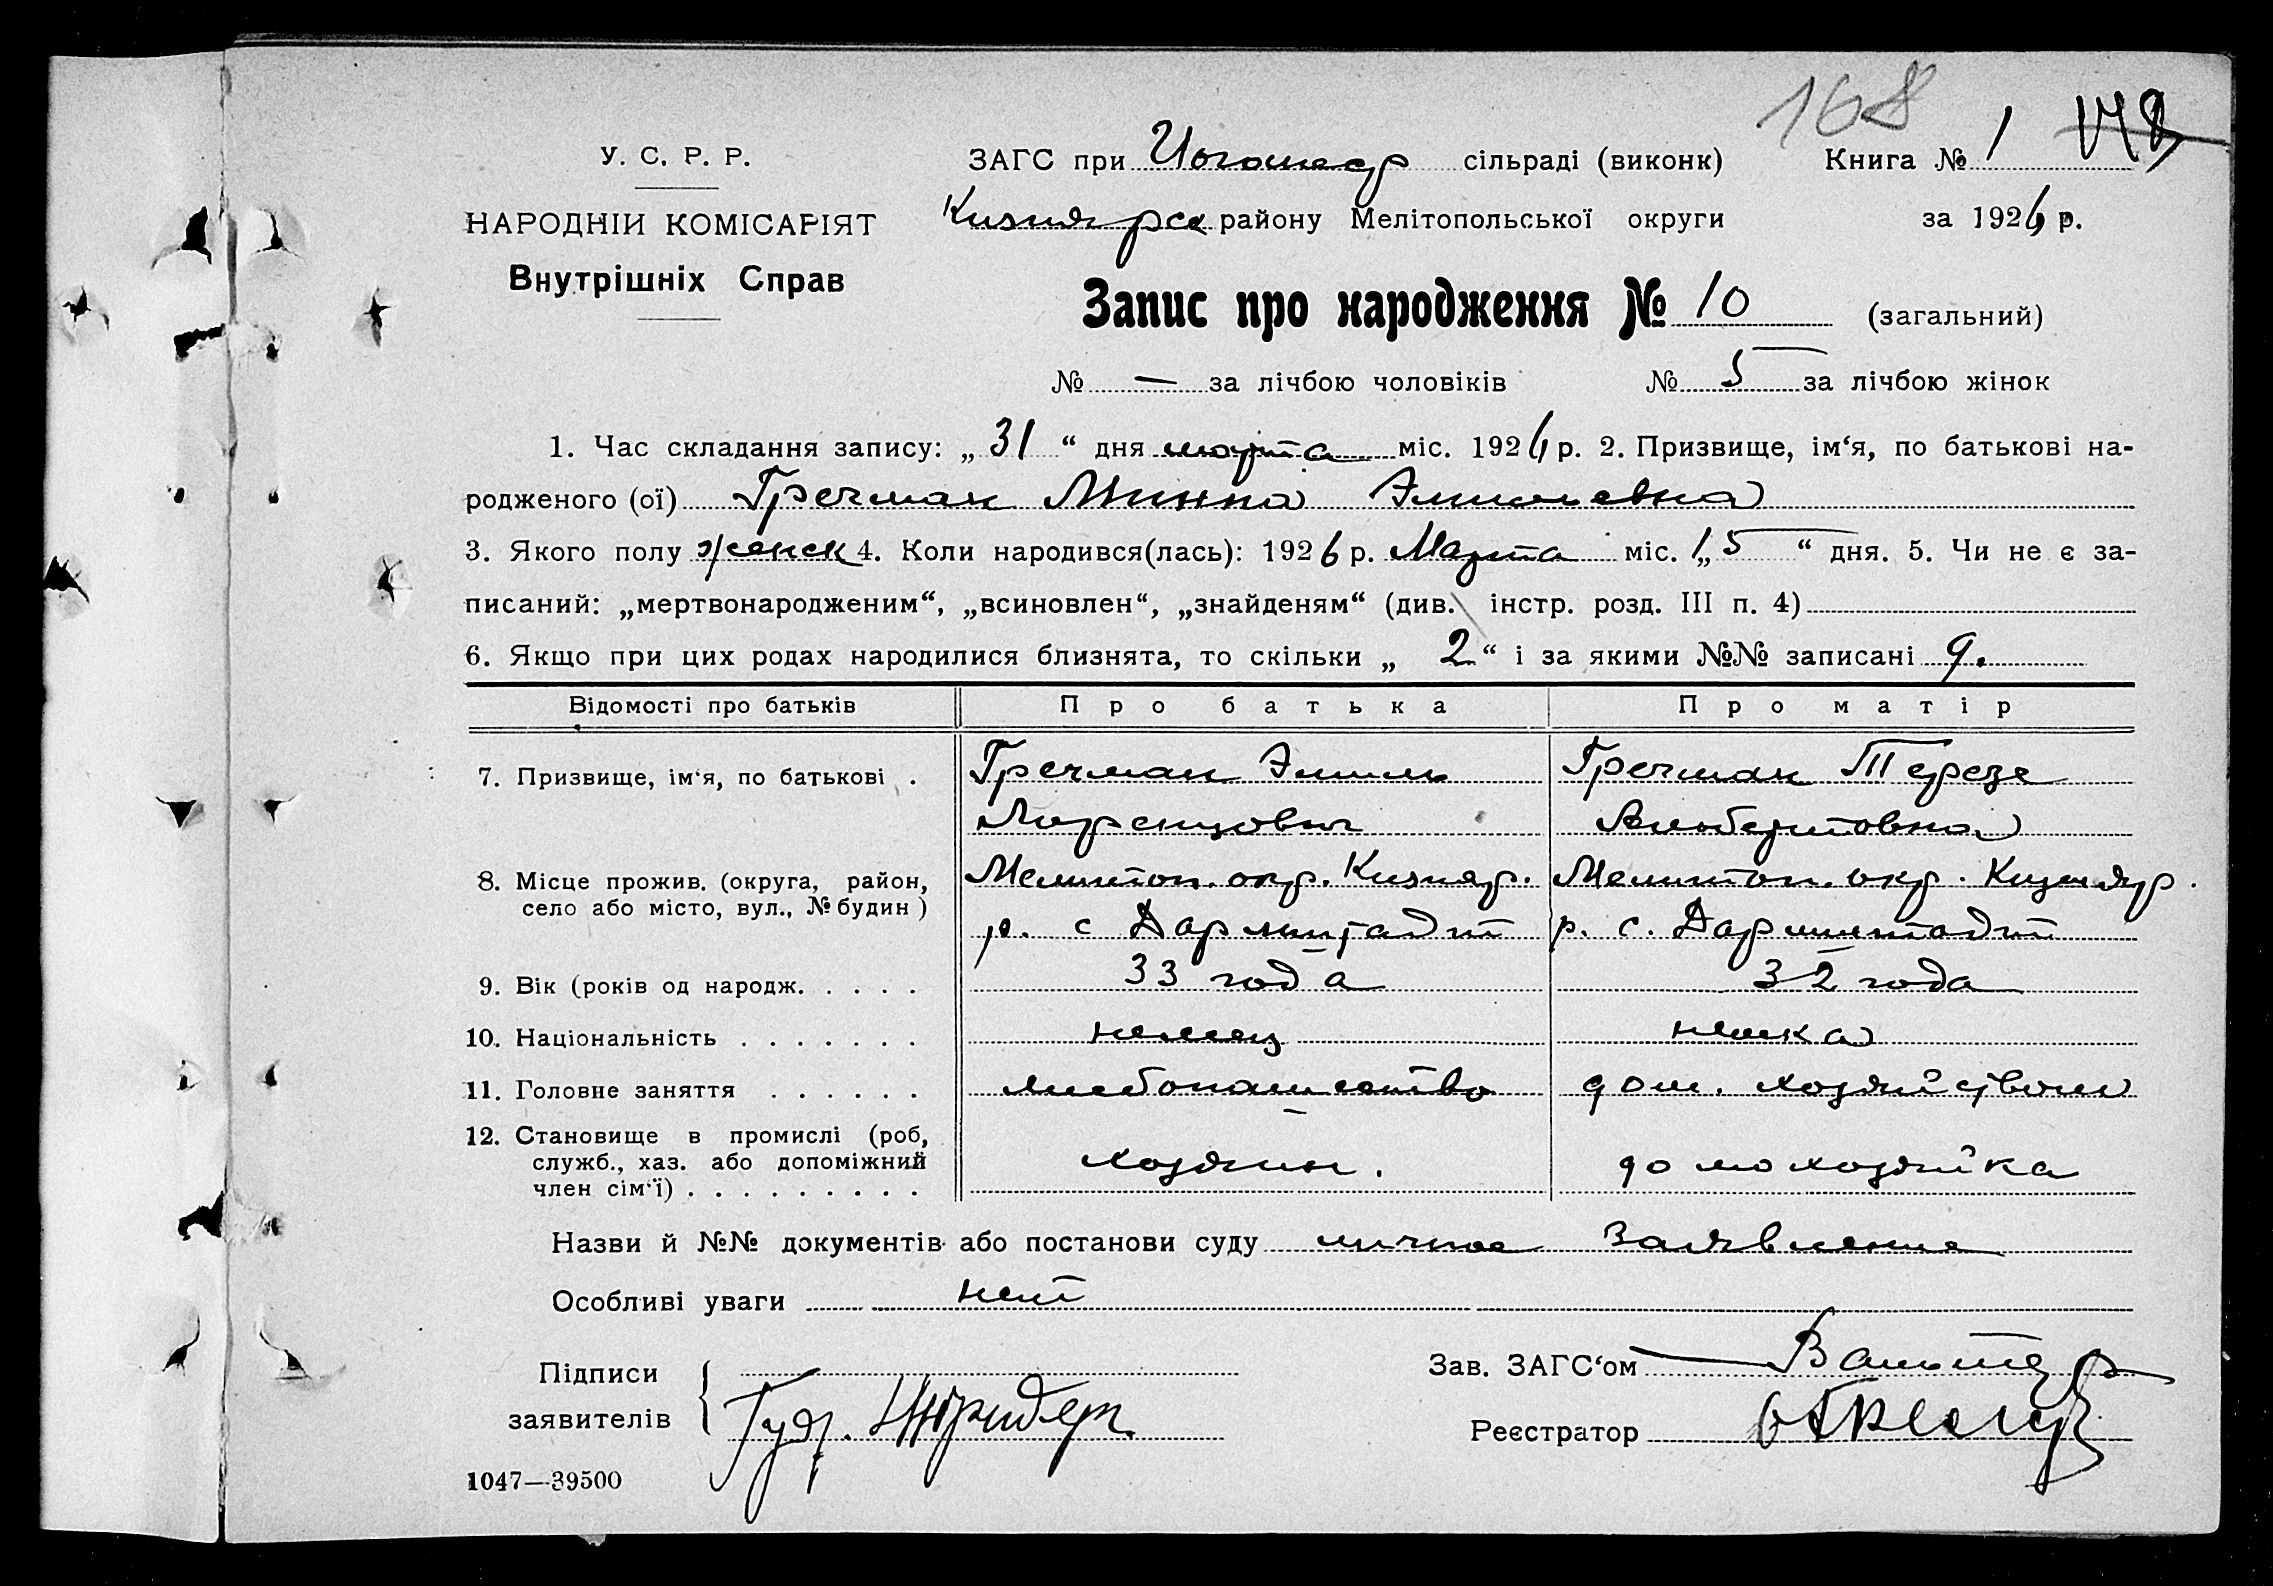 168
У. С. Р. Р.
ЗАГС при сільраді (виконк) Книга № 1 148
НАРОДНІЙ КОМІСАРІЯТ
Кизиярск району Мелітопольської округи за 1926 р.
Внутрішніх Справ
Запис про народження № 10 (загальний)
№ — за лічбою чоловіків № 5 за лічбою жінок
1. Час складання запису: „ 31 “ дня марта міс. 1926 р. 2. Призвище, ім‘я, по батькові на-
родженого (ої) Гречман Минна Эмильевна
3. Якого полу женск 4. Коли народився(лась): 1926 р. Марта міс. „15 “ дня. 5. Чи не є за-
писаний: „мертвонародженим“, „всиновлен“, „знайденям“ (див. інстр. розд. III п. 4)
6. Якщо при цих родах народилися близнята, то скільки „ 2 “ і за якими №№ записані 9.
Відомості про батьків Про батька Про матір
7. Призвище, ім‘я, по батькові . Гречман Эмиль Гречман Терезе
Лоренцович Альбертовна
8. Місце прожив. (округа, район, Мелитоп. окр. Кизияр. Мелитоп. окр. Кизияр.
село або місто, вул., № будин) р. с Дармштадт р. с. Дармштадт
9. Вік (років од народж. . . . . 33 года 32 года
10. Національність . . . . . . . немец немка
11. Головне заняття . . . . . . хлебопашество дом. хозяйством
12. Становище в промислі (роб,
служб., хаз. або допоміжний хозяин. домохозяйка
член сім‘ї) . . . . . . . . .
Назви й №№ документів або постанови суду личное Заявление
Особливі уваги нет
Підписи Зав. ЗАГС‘ом Вальтер
заявителів { Реєстратор
1047—39500